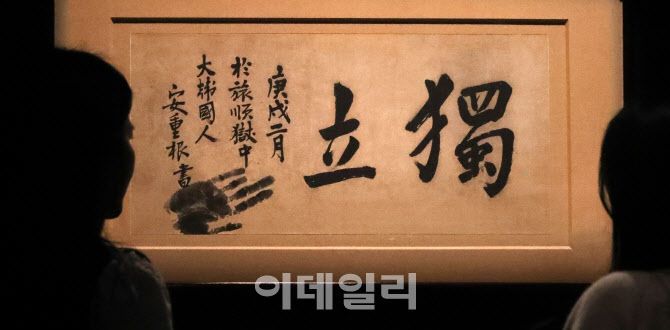 獨立
庚戌二月
於旅順獄中
大韓國人
安重根書
이데일리